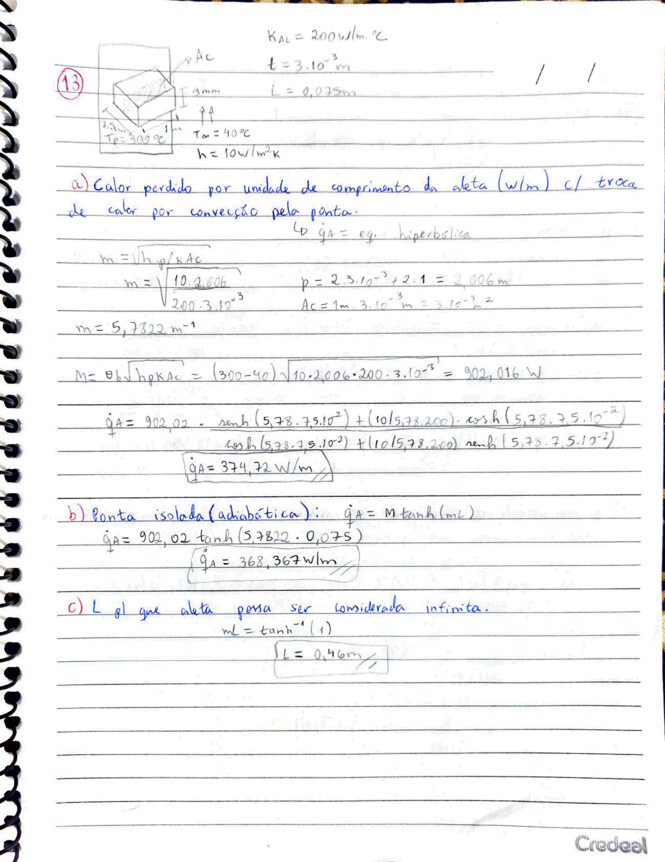 K_AL = 200 W/m.°C
t = 3.10⁻³ m
L = 0,075m
/ /
13
Ac
3mm
1m
Tp = 300°C
T∞ = 40°C
h = 10 W/m²K
a) Calor perdido por unidade de comprimento da aleta (W/m) c/ troca
de calor por convecção pela ponta.
↳ q̇A = eq. hiperbólica
m = √hp/kAc
m = √(10.2,006 / 200.3.10⁻³)
p = 2.3.10⁻³ + 2.1 = 2,006m
Ac = 1m.3.10⁻³m = 3.10⁻³m²
m = 5,7822 m⁻¹
M = θb√hpkAc = (300-40)√10.2,006.200.3.10⁻³ = 902,016 W
q̇A = 902,02 . senh(5,78.7,5.10⁻²) + (10/5,78.200).cosh(5,78.7,5.10⁻²)
cosh(5,78.7,5.10⁻²) + (10/5,78.200) senh(5,78.7,5.10⁻²)
q̇A = 374,72 W/m
b) Ponta isolada (adiabática): q̇A = M tanh(mL)
q̇A = 902,02 tanh(5,7822.0,075)
q̇A = 368,367 W/m
c) L p/ que aleta possa ser considerada infinita.
mL = tanh⁻¹(1)
L = 0,46m
Credeal